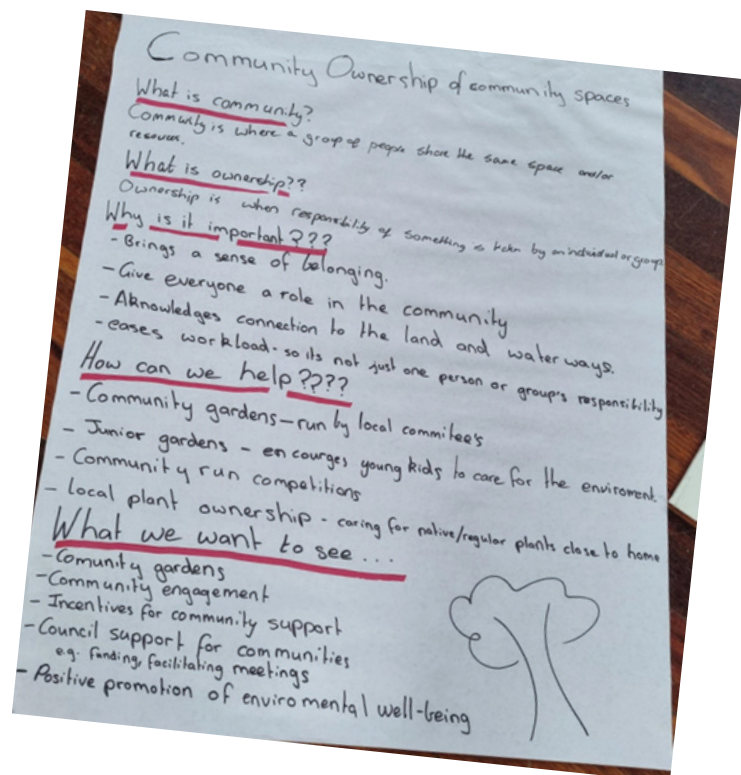 Community Ownership of community spaces
What is community?
Community is where a group of people share the same space and/or
resources.
What is ownership??
Ownership is when responsibility of something is taken by an individual or group.
Why is it important???
- Brings a sense of belonging.
- Give everyone a role in the community
- Aknowledges connection to the land and water ways.
- eases workload - so its not just one person or group's responsibility
How can we help????
- Community gardens - run by local commitee's
- Junior gardens - encourges young kids to care for the enviroment.
- Community run competitions
- local plant ownership - caring for native/regular plants close to home
What we want to see...
- Comunity gardens
- Community engagement
- Incentives for community support
- Council support for communities
e.g. funding, facilitating meetings
- Positive promotion of enviromental well-being